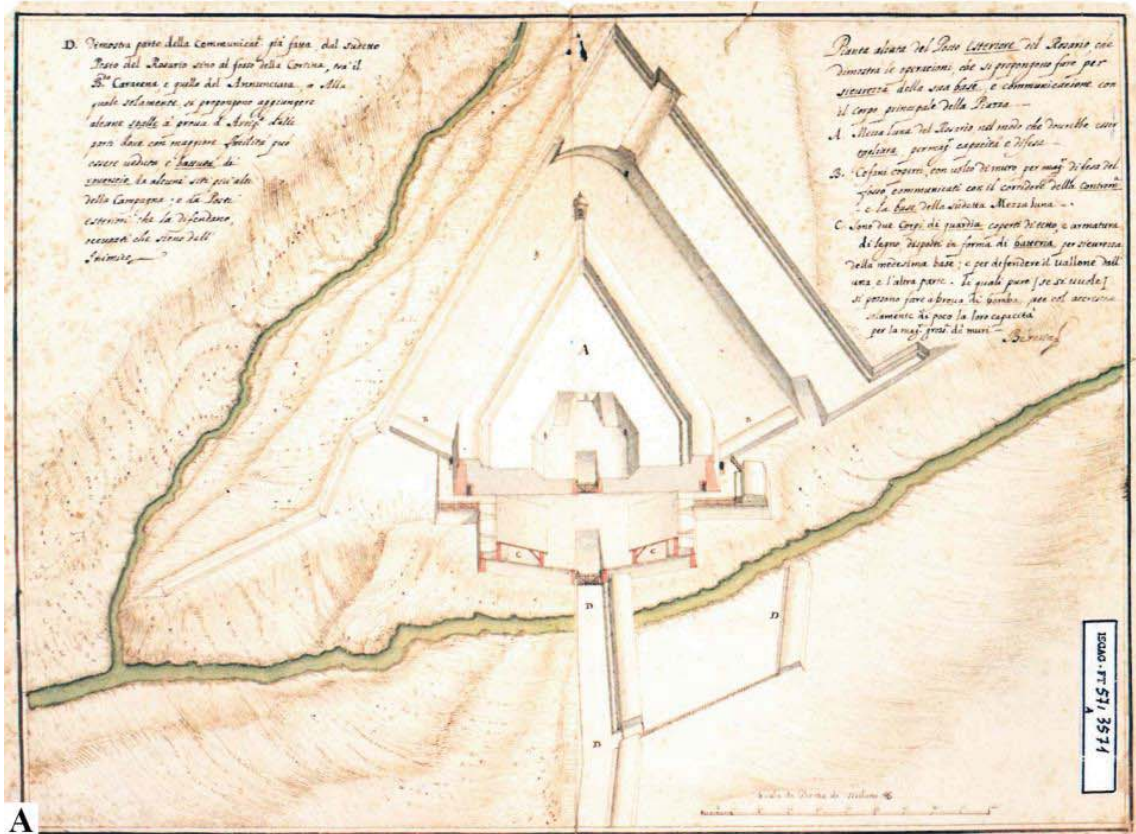 D. Dimostra parte della Communicat.e già fatta dal sudetto
Posto del Rosario sino al fosso della Cortina, tra il
B.do Caracena e quello del Annunciata, a Alla
quale solamente, si propongono aggiungere
alcune spalle à prova d'
parti dove con maggiore facilità può
essere veduta e battuta di
da alcuni siti più alti
della Campagna; e da Posti
esteriori che la difendano,
occupati che sieno dell'
Inimico
Pianta alzata del Posto Esteriore del Rosario, che
dimostra le operationi, che si propongono fare per
sicurezza della sua base, e communicatione con
il Corpo principale della Piazza.
A Mezza Luna del Rosario nel modo che dourebbe esser
tagliata, per mag.r capacità e difesa.
B. Cofani coperti, con volto di muro, per mag.r difesa del
fosso communicati con il corridore della
e la base della sudetta Mezza luna.
C. Sono due Corpi di guardia coperti di tetto, e armatura
di legno disposti in forma di batteria per sicurezza
della medesima base; e per defendere il vallone dall'
una e l'altra parte. Li quali puro [se si vuole]
si possono fare a prova di bomba,
solamente di poco la loro capacità
per la mag.r gros.a de muri
A
B
B
C
C
D
D
D
Scala di
A
A